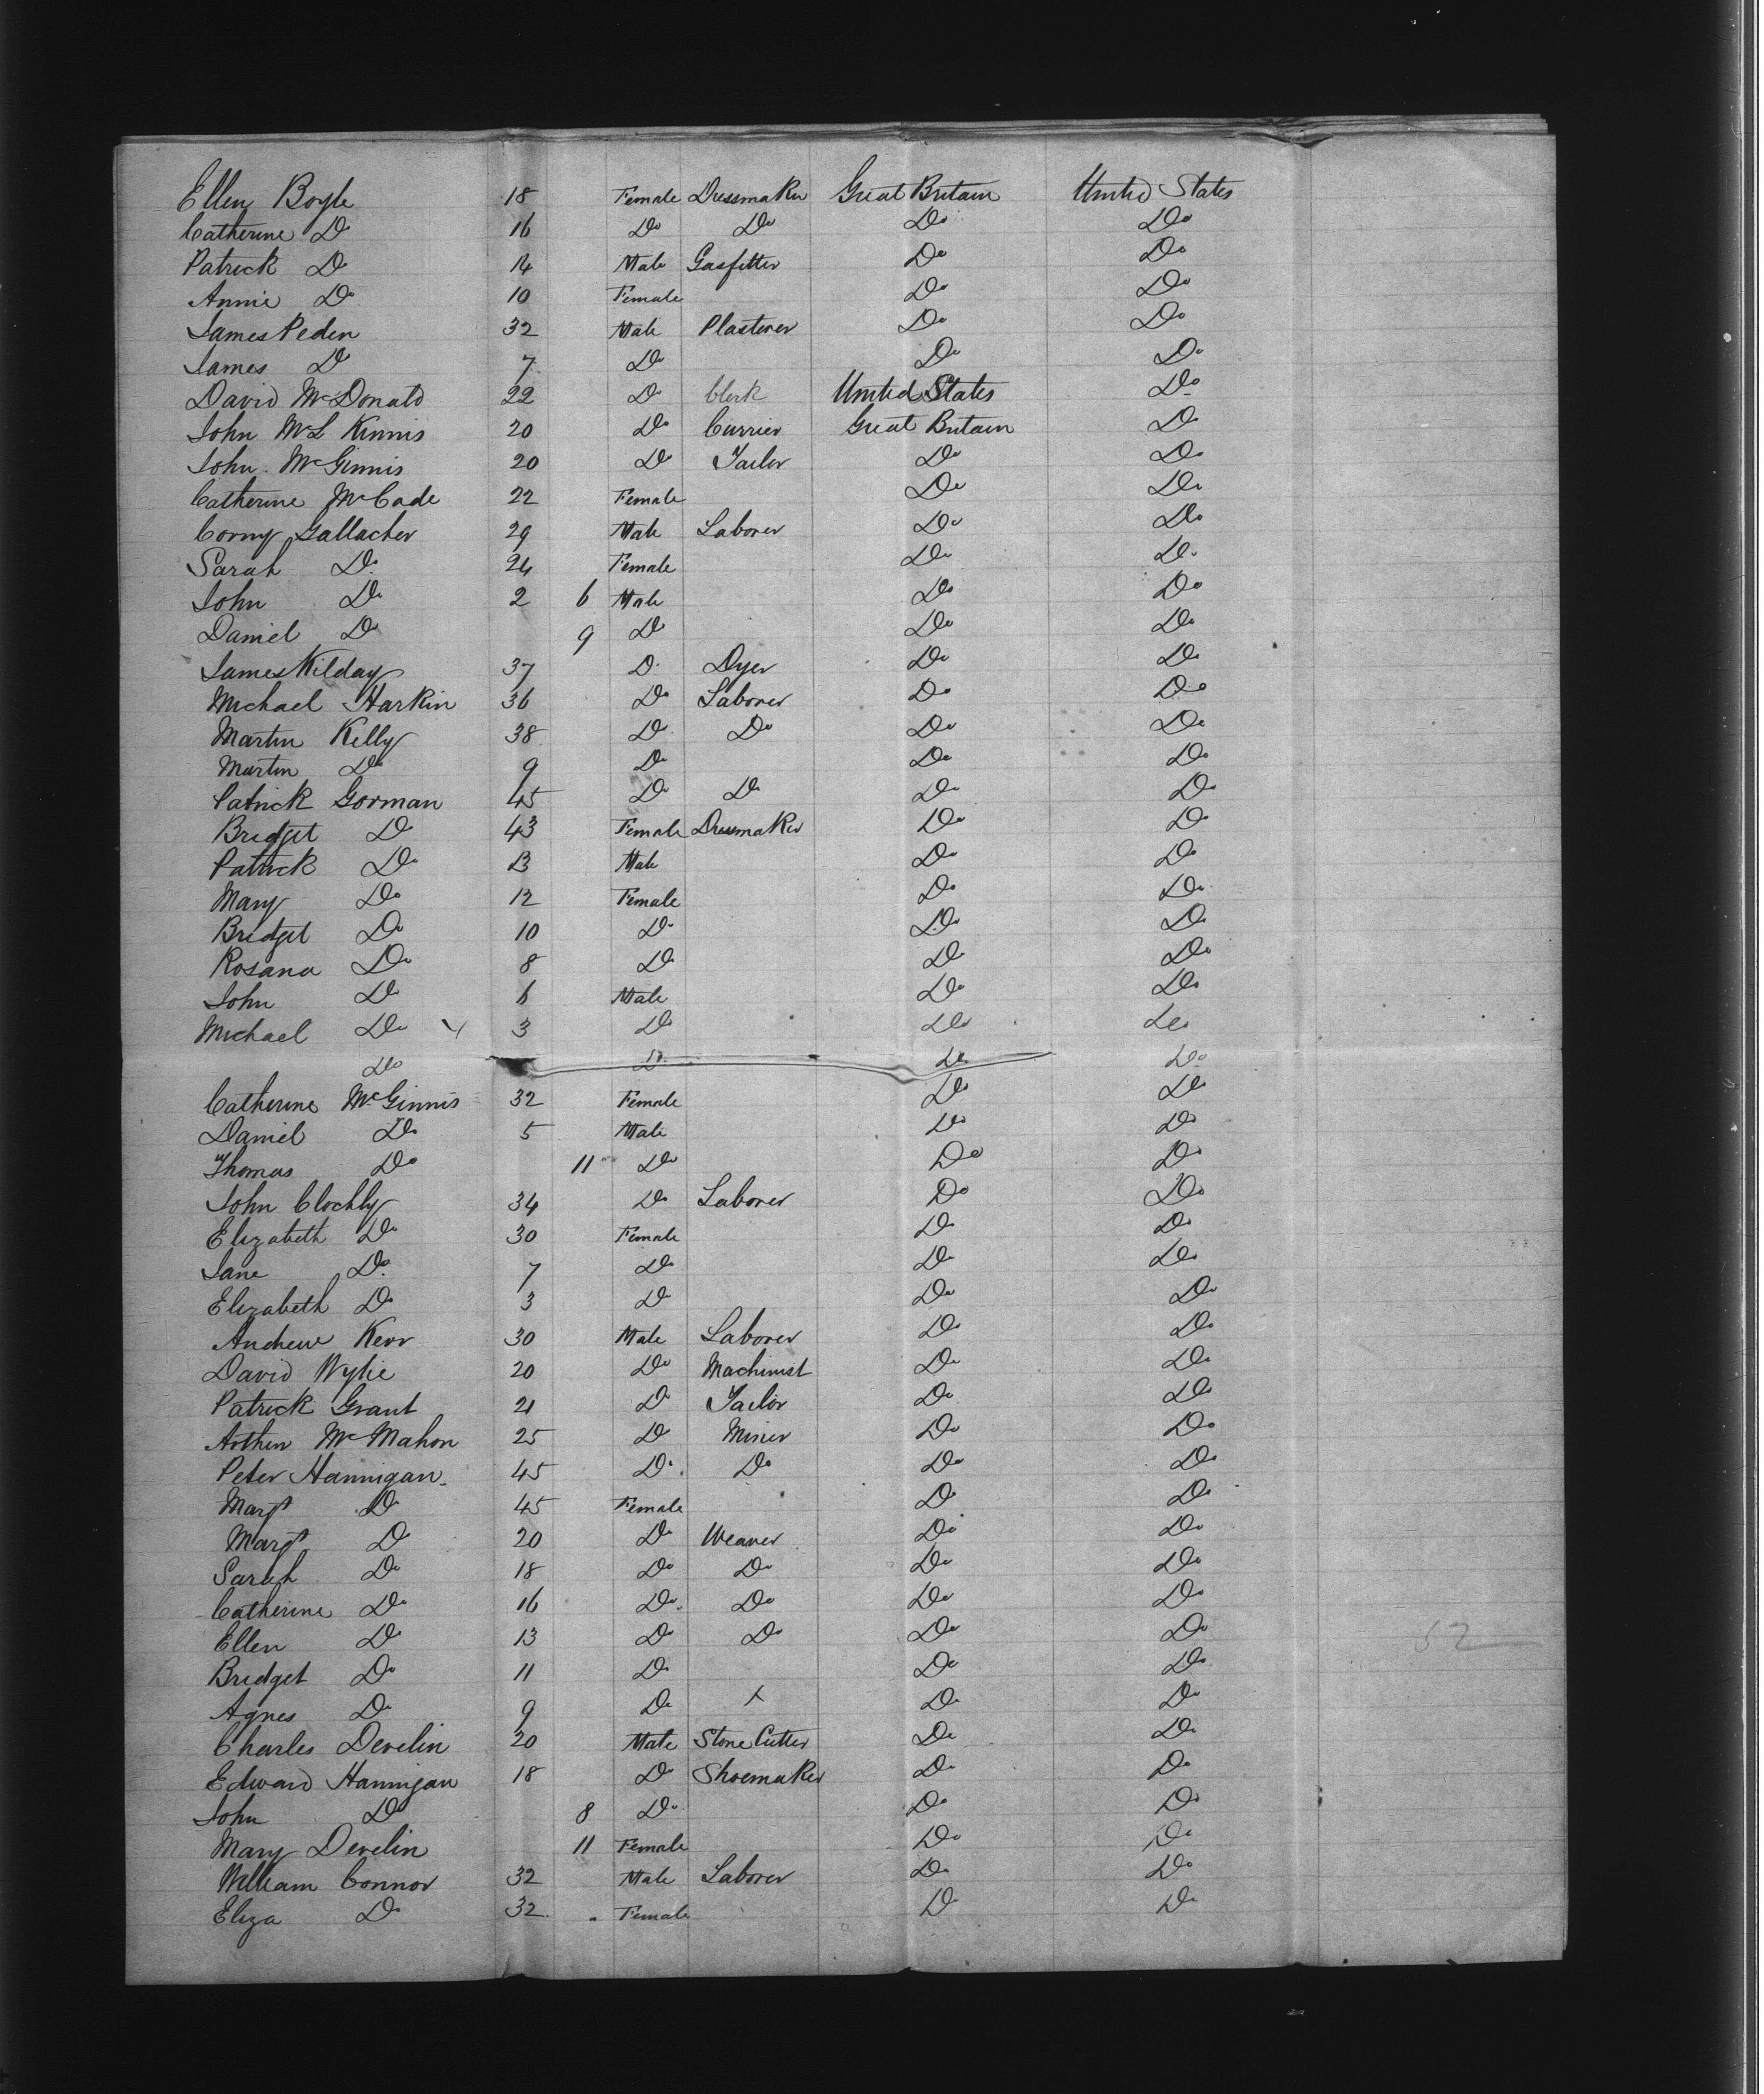 Ellen Boyle 18 Female Dressmaker Great Britain United States
Catherine Do 16 Do Do Do Do
Patrick Do 14 Male Gasfitter Do Do
Annie Do 10 Female Do Do
James Peden 32 Male Plasterer Do Do
James Do 7 Do Do Do
David McDonald 22 Do Clerk United States Do
John McL Kinnis 20 Do Currier Great Britain Do
John McGinnis 20 Do Tailor Do Do
Catherine McCade 22 Female Do Do
Corny Gallacher 29 Male Laborer Do Do
Sarah Do 24 Female Do Do
John Do 2 6 Male Do Do
Daniel Do 9 Do Do Do
James Kilday 37 Do Dyer Do Do
Michael Harkin 36 Do Laborer Do Do
Martin Kelly 38 Do Do Do Do
Martin Do 9 Do Do Do
Patrick Gorman 45 Do Do Do Do
Bridget Do 43 Female Dressmaker Do Do
Patrick Do 13 Male Do Do
Mary Do 12 Female Do Do
Bridget Do 10 Do Do Do
Rosana Do 8 Do Do Do
John Do 6 Male Do Do
Michael Do 3 Do Do Do
Do Do Do Do
Catherine McGinnis 32 Female Do Do
Daniel Do 5 Male Do Do
Thomas Do 11 Do Do Do
John Clochly 34 Do Laborer Do Do
Elizabeth Do 30 Female Do Do
Jane Do 7 Do Do Do
Elizabeth Do 3 Do Do Do
Andrew Kerr 30 Male Laborer Do Do
David Wylie 20 Do Machinist Do Do
Patrick Grant 21 Do Tailor Do Do
Arther McMahon 25 Do Miner Do Do
Peter Hannigan 45 Do Do Do Do
Margt Do 45 Female Do Do
Margt Do 20 Do Weaver Do Do
Sarah Do 18 Do Do Do Do
Catherine Do 16 Do Do Do Do
Ellen Do 13 Do Do Do Do 52
Bridget Do 11 Do Do Do
Agnes Do 9 Do x Do Do
Charles Develin 20 Male Stone Cutter Do Do
Edward Hannigan 18 Do Shoemaker Do Do
John Do 8 Do Do Do
Mary Develin 11 Female Do Do
William Connor 32 Male Laborer Do Do
Eliza Do 32 Female Do Do